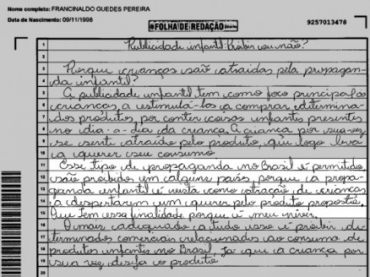 Nome completo: FRANCINALDO GUEDES PEREIRA
Data de Nascimento: 09/11/1998
FOLHA DE REDAÇÃO
9257013476
Publicidade infantil: proibir ou não?
Porque crianças são atraidas pela propagan-
da infantil?
A publicidade infantil tem como foco principal as
crianças, a estimulá-las a comprar determina-
dos produtos, por conter coisas infantis presentes
no dia-a-dia da criança. A criança por sua vez
se sente atraida pelo produto, que logo leva
a querer seu consumo.
Esse tipo de propaganda no Brasil é permitido,
são proibidos em alguns país, porque a propa-
ganda infantil é vista como atração de crianças
a despertarem um querer pelo produto proposto,
que tem essa finalidade porque é meu
O mais adequado a tudo isso é proibir de-
terminados comerciais relacionados ao consumo de
produtos infantis no Brasil. Já que a criança por
sua vez, deseja o produto